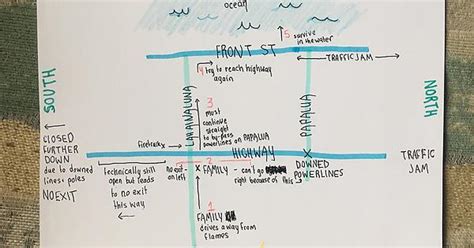 ocean
5 survive
in the water
FRONT ST
TRAFFIC JAM
4 try to reach highway
again
SOUTH
NORTH
3
must
continue
straight
to by-pass
powerlines on PAPALUA
LAHAINALUNA
PAPALUA
firetruck
CLOSED
FURTHER
DOWN
due to downed
lines + poles
NO EXIT
HIGHWAY
technically still
open but leads
to no exit
this way
no exit
on left
2
X FAMILY - can't go
right because of this
X
DOWNED
POWERLINES
TRAFFIC
JAM
1
FAMILY
drives away from
flames